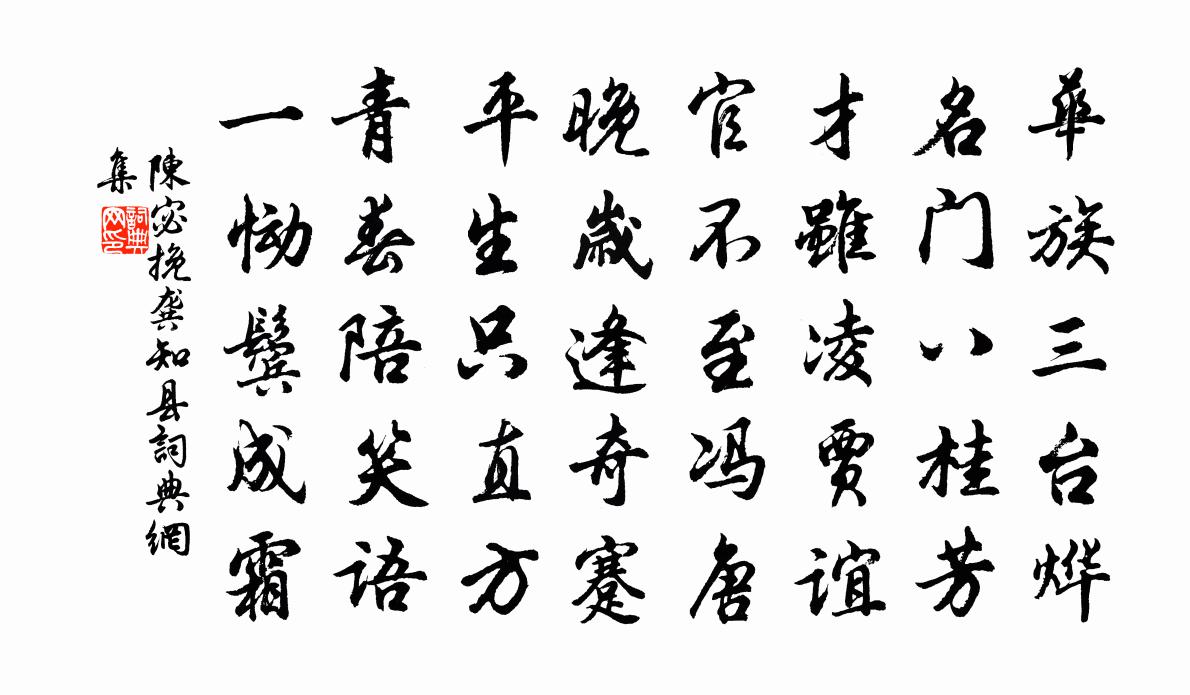 華族三台烨
名门八桂芳
才雖凌贾谊
官不至冯唐
晚歲逢奇蹇
平生只直方
青春陪笑语
一恸鬓成霜
陳宓挽龚知县詞典網
集
詞典
网印